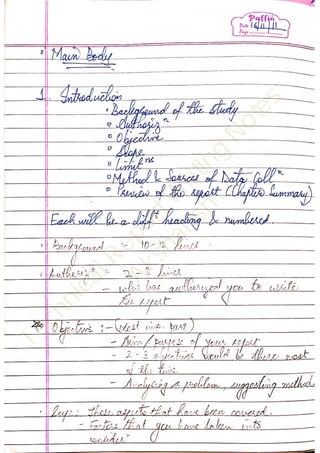 Puffin
Date 16/11/11
Page
• Main Body
1. Introduction
• Background of the study
• Authorizⁿ
• Objective
• Scope
• Limitⁿs
• Method & Sources of Data Collⁿ
• Preview of the report (Chapter Summary)
Each will be a diffᵗ heading & numbered.
• Background = 10-12 lines.
• Authorizⁿ = 2-3 lines
- who has authorized you to write
the report
Objective :- (Most imp. part)
- Aim / purpose of your report
- 2-3 objectives would be there most
of the time
- Analysing a problem, suggesting method
• Scope: Those aspects that have been covered
- Factors that you have taken into
considerⁿ